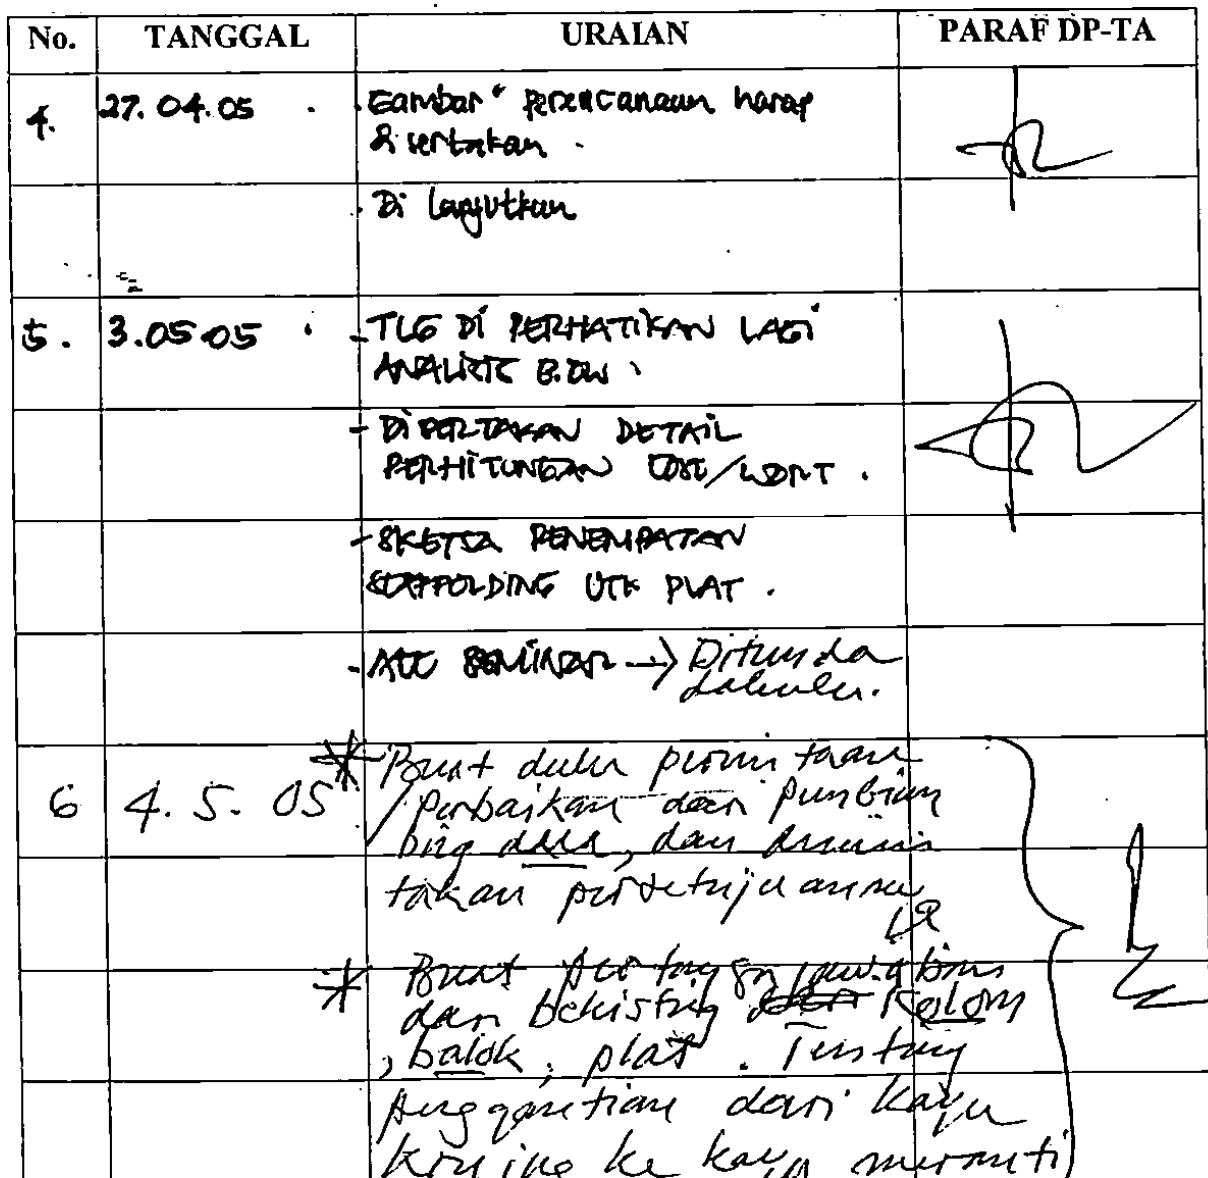 No. TANGGAL URAIAN PARAF DP-TA
4. 27.04.05 . Gambar" perencanaan harap
disertakan .
. Di lanjutkan
5. 3.05.05 - TLG DI PERHATIKAN LAGI
ANALISIS B.O.W .
- DISERTAKAN DETAIL
PERHITUNGAN COST/
- SKETSA PENEMPATAN
SCAFFOLDING UTK PLAT .
- ACC SEMINAR → Ditunda
dahulu.
6 4.5.05 * Buat dulu permintaan
/perbaikan dari pembim
bing dua, dan
takan persetujuannya
* Buat pertanggung jawaban
dari bekisting dari kolom
, balok, plat. Tentang
penggantian dari kayu
kruing ke kayu meranti